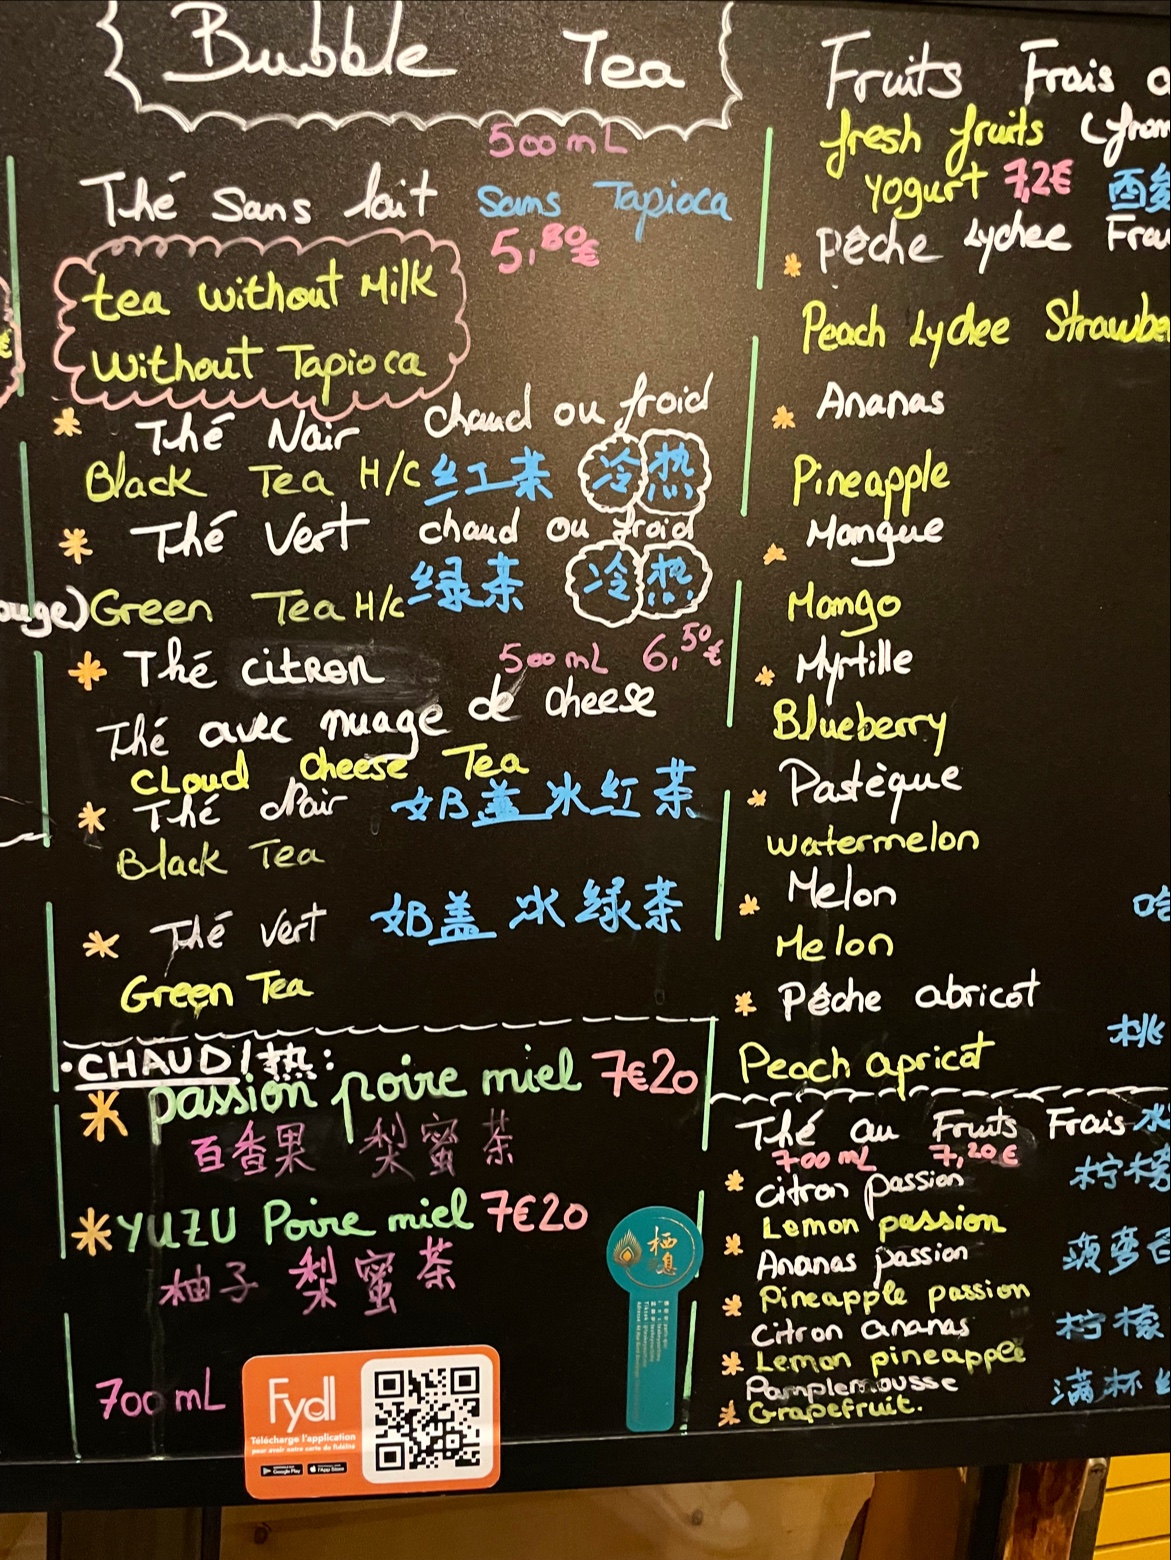 Bubble Tea
500 mL
Thé Sans lait Sans Tapioca
5,80€
tea without Milk
Without Tapioca
* Thé Noir chaud ou froid
Black Tea H/C 红茶 冷 热
* Thé Vert chaud ou froid
ouge)
Green Tea H/C 绿茶 冷 热
* Thé citron 500 mL 6,50€
Thé avec nuage de cheese
CLoud Cheese Tea
* Thé Noir 奶盖冰红茶
Black Tea
* Thé Vert 奶盖冰绿茶
Green Tea
·CHAUD/热:
* passion poire miel 7€20
百香果 梨蜜茶
* YUZU Poire miel 7€20
柚子 梨蜜茶
700 mL
Fydl
Télécharge l'application
pour avoir notre carte de fidélité
Google Play
App Store
栖息
Fruits Frais
fresh fruits (from
yogurt 7,2€ 酸
* Pêche Lychee Frai
Peach Lychee Strawbe
* Ananas
Pineapple
* Mangue
Mango
* Myrtille
Blueberry
* Pastèque
watermelon
* Melon 哈
Melon
* Pêche abricot
桃
Peach apricot
Thé au Fruits Frais 水
700 mL 7,20€
* citron passion 柠檬
Lemon passion
* Ananas passion 菠萝百
* Pineapple passion
citron ananas 柠檬
* Lemon pineapple
Pamplemousse 满杯
* Grapefruit.